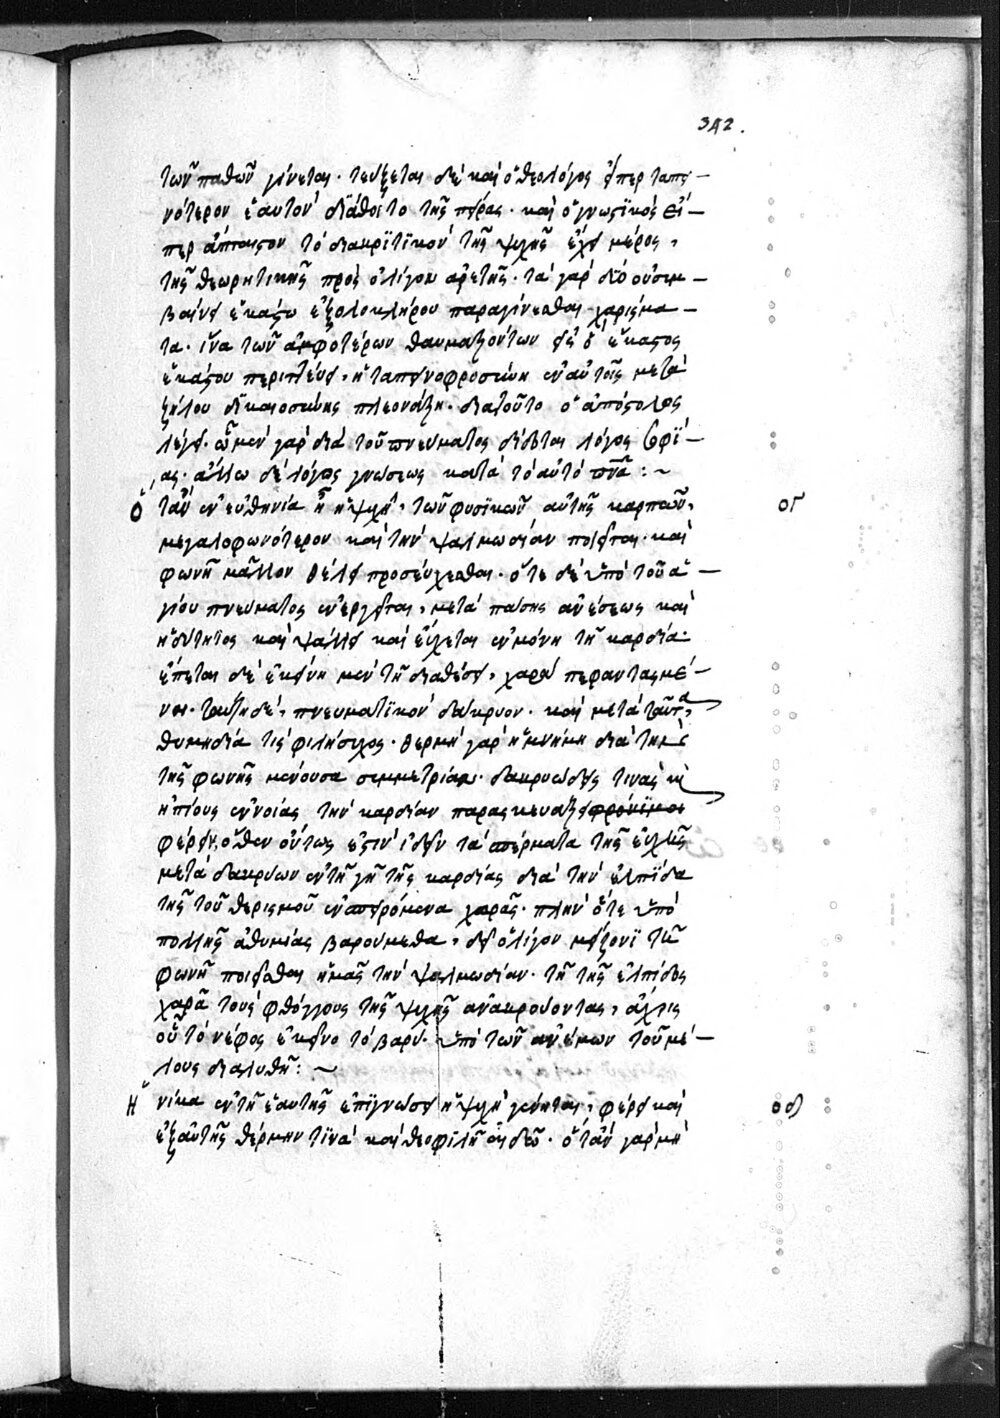 342.
τῶν παθῶν γίνεται· τεύξεται δὲ καὶ ὁ θεολόγος εἴπερ ταπει–
νότερον ἑαυτὸν διάθοιτο τῆς πείρας· καὶ ὁ γνωστϊκὸς εἴ–
περ ἄπταιστον τὸ διακρϊτϊκὸν τῆς ψυχῆς ἔχει μέρος,
τῆς θεωρητικῆς πρὸς ὀλίγον ἀρετῆς· τὰ γὰρ δύο οὐ συμ–
βαίνει ἑκάστω ἐξολοκλήρου παραγίνεσθαι χαρίσμα–
τα· ἵνα τῶν ἀμφοτέρων θαυμαζόντων εἰς ὃ ἕκαστος
ἑκάστου περιττεύει, ἡ ταπεινοφροσύνη ἐν αὐτοῖς μετὰ
ζήλου δϊκαιοσύνης πλεονάζη· διατοῦτο ὁ ἀπόστολος
λέγει· ᾧ μὲν γὰρ διὰ τοῦ πνεύματος δίδοται λόγος σοφΐ–
ας· ἄλλω δὲ λόγος γνώσεως κατὰ τὸ αὐτὸ πνᾶ : ~
Ὅταν ἐν εὐθηνία ᾖ ἡ ψυχὴ, τῶν φυσϊκῶν αὐτῆς καρπῶν, ογ
μεγαλοφωνότερον καὶ τὴν ψαλμωδίαν ποιεῖται· καὶ
φωνῆ μᾶλλον θέλει προσεύχεσθαι· ὅτε δὲ ὑπὸ τοῦ ἁ–
γίου πνεύματος ἐνεργεῖται, μετὰ πάσης ἀνέσεως καὶ
ἡδύτητος καὶ ψάλλει καὶ εὔχεται ἐν μόνη τῆ καρδία·
ἕπεται δὲ ἐκείνη μὲν τῆ διαθέσει, χαρὰ πεφαντασμέ–
νη· ταύτη δὲ, πνευματϊκὸν δάκρυον· καὶ μετὰ ταῦτα,
θυμηδία τὶς φιλήσυχος· θερμὴ γὰρ ἡ μνήμη διὰ τὴν
τῆς φωνῆς μένουσα συμμετρίαν· δακρυώδεις τινὰς κὶ
ἠπίους ἐννοίας τὴν καρδίαν παρασκευάζει
φέρειν, ὅθεν ὄντως ἐστὶν ἰδεῖν τὰ σπέρματα τῆς εὐχῆς
μετὰ δακρύων ἐν τῆ γῆ τῆς καρδίας διὰ τὴν ἐλπίδα
τῆς τοῦ θερισμοῦ ἐνσπειρόμενα χαρᾶς· πλὴν ὅτε ὑπὸ
πολλῆς ἀθυμίας βαρούμεθα, δεῖ ὀλίγον μείζονϊ τῆ
φωνῆ ποιεῖσθαι ἡμᾶς τὴν ψαλμωδίαν· τῆ τῆς ἐλπίδος
χαρᾶ τοὺς φθόγγους τῆς ψυχῆς ἀνακρούοντας, ἄχρις
οὗ τὸ νέφος ἐκεῖνο τὸ βαρὺ, ὑπὸ τῶν ἀνέμων τοῦ μέ–
λους διαλυθῆ : ~
Ἡνίκα ἐν τῆ ἑαυτῆς ἐπϊγνώσει ἡ ψυχὴ γένηται, φέρει καὶ οδ
ἐξαὐτῆς θέρμην τϊνὰ καὶ θεοφιλῆ αἰδῶ· ὅταν γὰρ μὴ